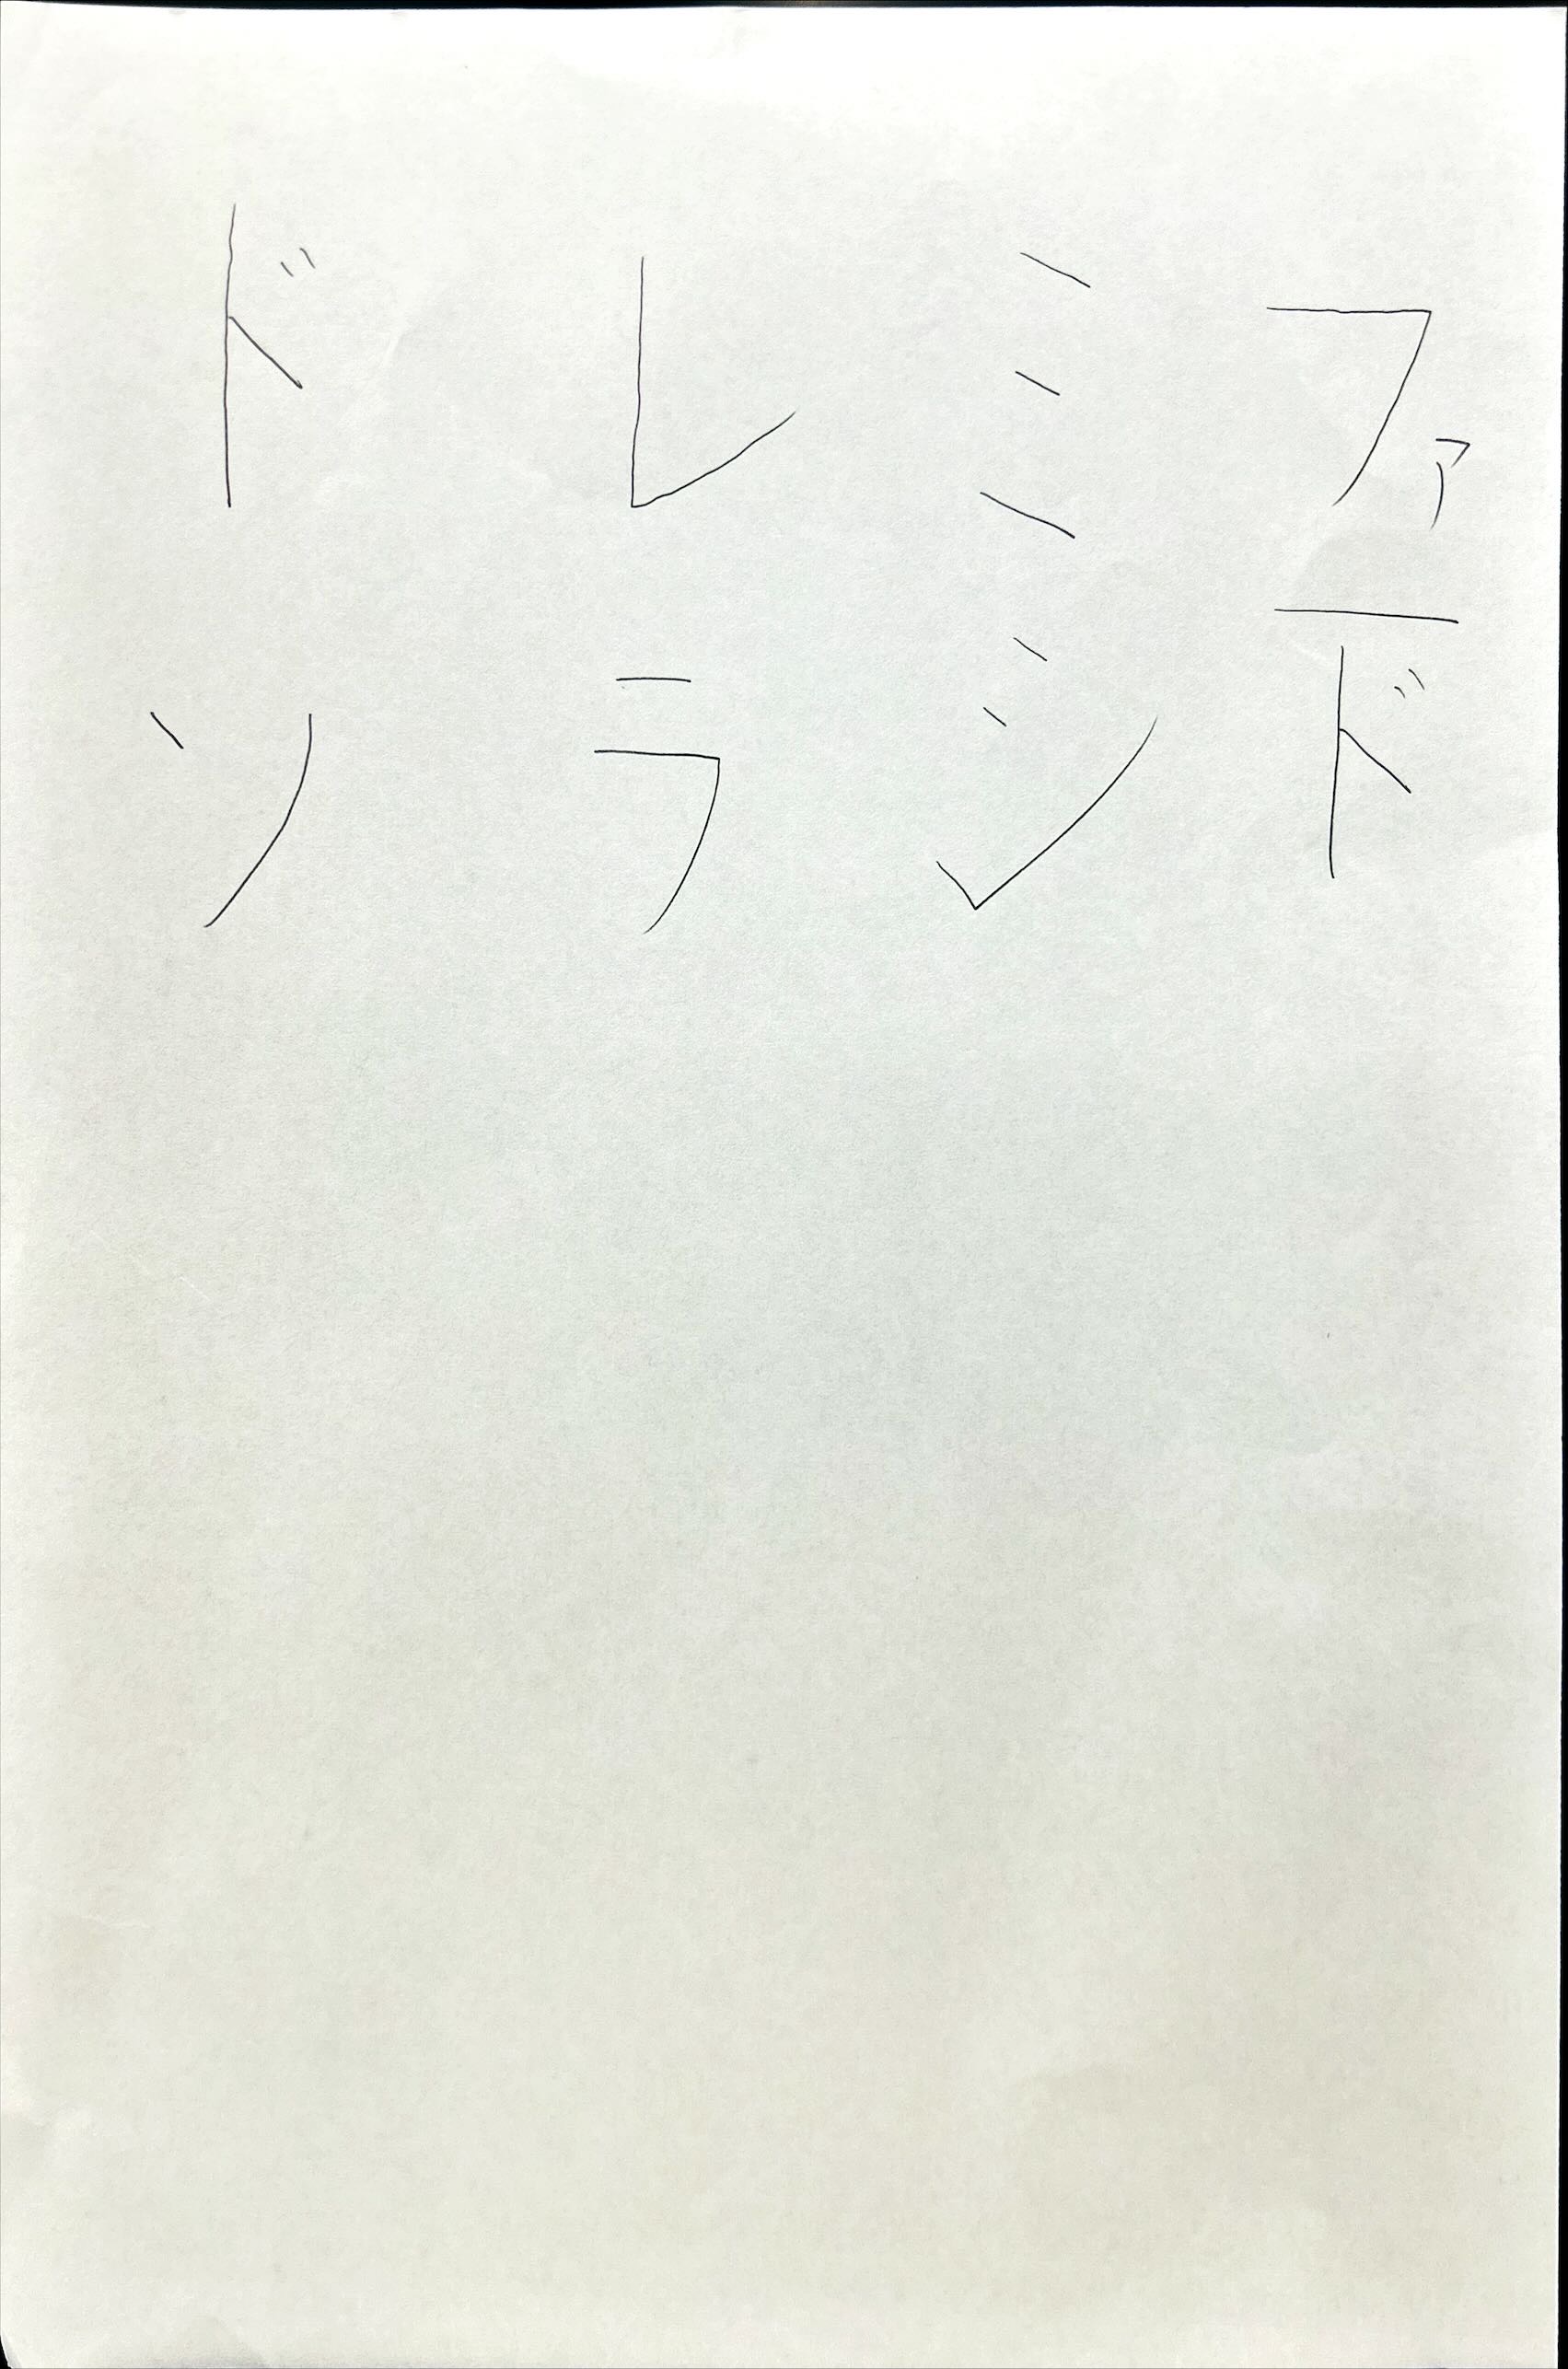 ドレミファ
ソラシド